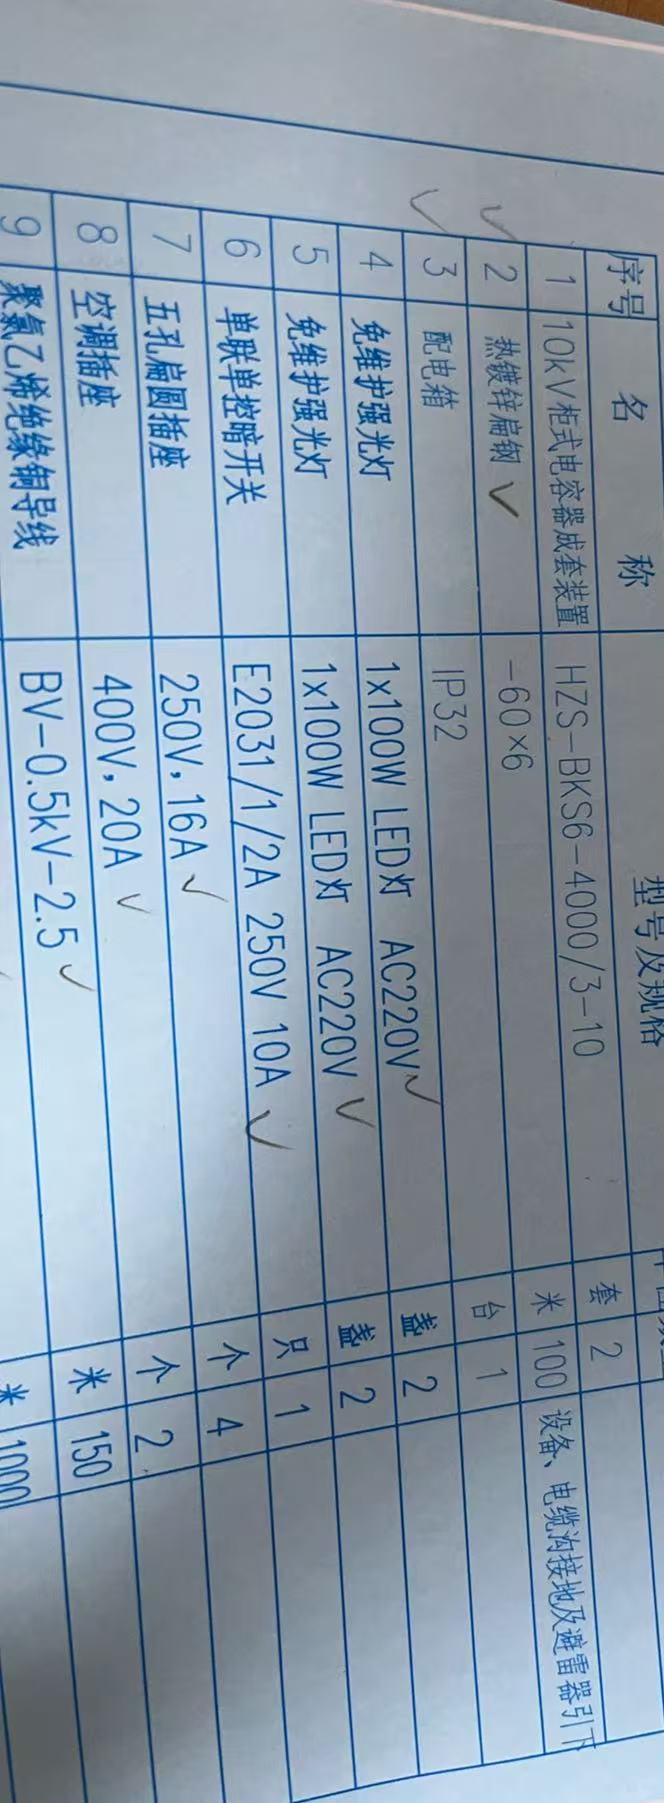 序号 名称 型号及规格
1 10kV柜式电容器成套装置 HZS-BKS6-4000/3-10 套 2
2 热镀锌扁钢 -60×6 米 100 设备、电缆沟接地及避雷器引下
3 配电箱 IP32 台 1
4 免维护强光灯 1x100W LED灯 AC220V 盏 2
5 免维护强光灯 1x100W LED灯 AC220V 盏 2
6 单联单控暗开关 E2031/1/2A 250V 10A 只 1
7 五孔扁圆插座 250V,16A 个 4
8 空调插座 400V,20A 个 2
9 聚氯乙烯绝缘铜导线 BV-0.5kV-2.5 米 150
米 1000